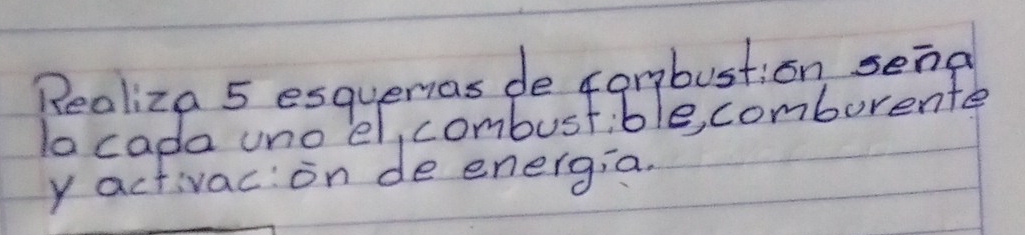 Realiza 5 esquemas de combustión seña
la cada uno el, combustible, comburente
y activación de energía.